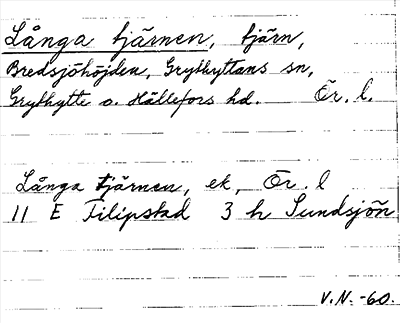 Långa tjärnen, tjärn,
Bredsjöhöjden, Grythyttans sn,
Grythytte o. Hällefors hd. Ör. l.
Långa tjärnen, ek, Ör. l
11 E Filipstad 3 h Sundsjön
V.N. -60.